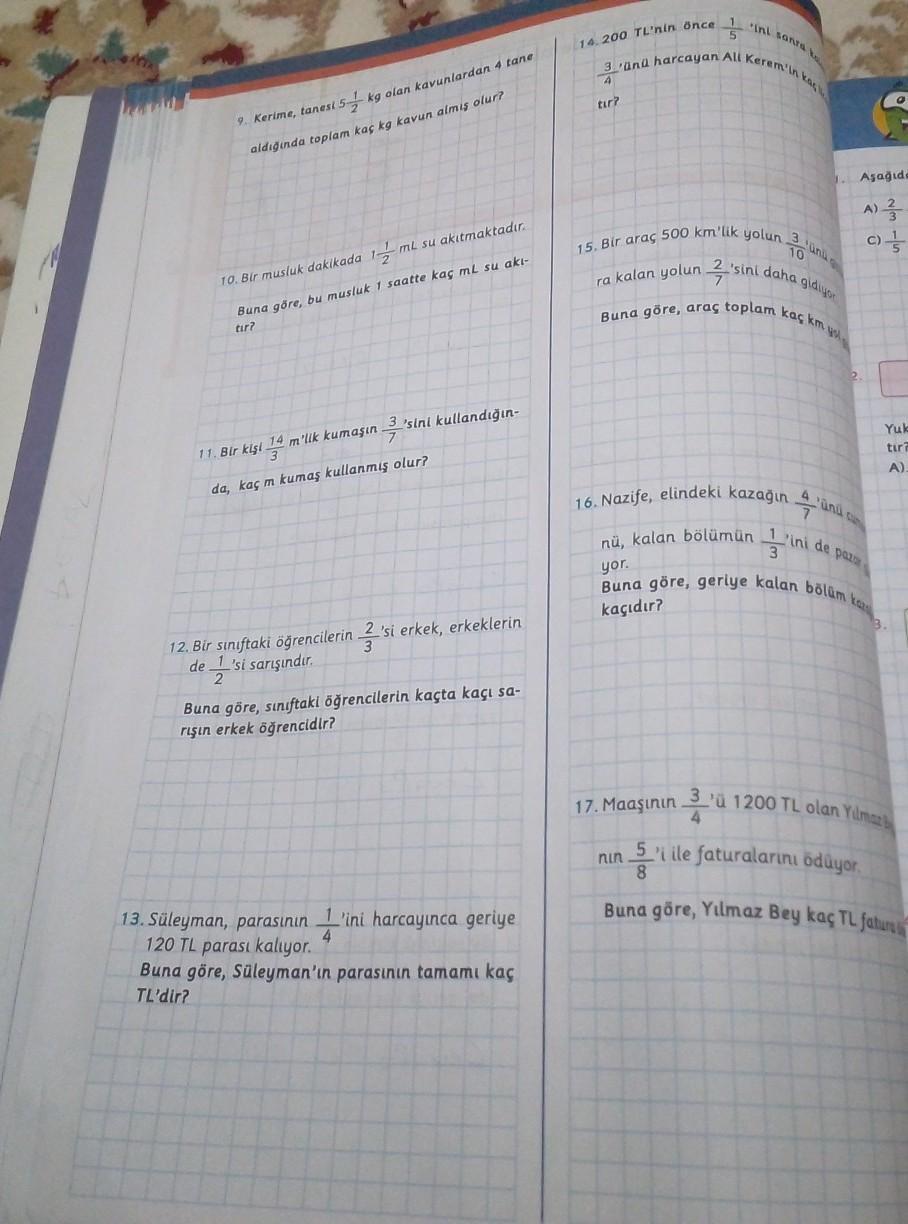 9. Kerime, tanesi 5 1/2 kg olan kavunlardan 4 tane
aldığında toplam kaç kg kavun almış olur?
10. Bir musluk dakikada 1 1/2 mL su akıtmaktadır.
Buna göre, bu musluk 1 saatte kaç mL su akı-
tır?
11. Bir kişi 14/3 m'lik kumaşın 3/7 'sini kullandığın-
da, kaç m kumaş kullanmış olur?
12. Bir sınıftaki öğrencilerin 2/3 'si erkek, erkeklerin
de 1/2 'si sarışındır.
Buna göre, sınıftaki öğrencilerin kaçta kaçı sa-
rışın erkek öğrencidir?
13. Süleyman, parasının 1/4 'ini harcayınca geriye
120 TL parası kalıyor.
Buna göre, Süleyman'ın parasının tamamı kaç
TL'dir?
14. 200 TL'nin önce 1/5 'ini sonra
3/4 'ünü harcayan Ali Kerem'in kaç
tır?
15. Bir araç 500 km'lik yolun 3/10 'ünü
ra kalan yolun 2/7 'sini daha gidiyor
Buna göre, araç toplam kaç km
16. Nazife, elindeki kazağın 4/7 'ünü
nü, kalan bölümün 1/3 'ini de
yor.
Buna göre, geriye kalan bölüm
kaçıdır?
17. Maaşının 3/4 'ü 1200 TL olan Yılmaz
nın 5/8 'i ile faturalarını ödüyor.
Buna göre, Yılmaz Bey kaç TL
1. Aşağıd
A) 2/3
C) 1/5
2.
Yuk
tır?
A)
3.